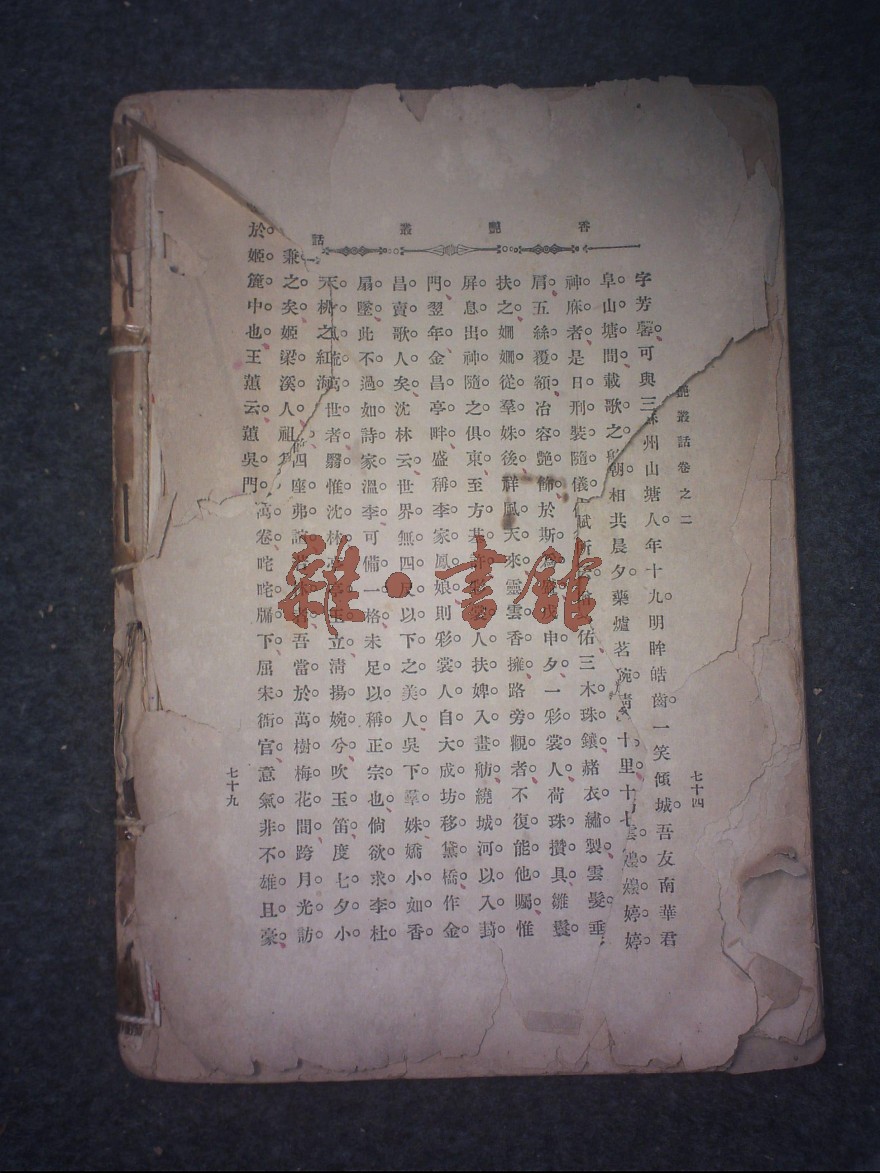 香艷叢話
艷叢話卷之二
七十四
字芳馨可與三
州山塘人年十九明眸皓齒一笑傾城吾友南華君
阜山塘間載歌之
朝相共晨夕藥爐茗碗
十里十
婷婷
神庥者是日刑裝隨儀
佑三木珠鑲赭衣繡製雲髮垂
肩五絲覆額冶容艷飾於斯
申夕一彩裳人荷珠攢具雛鬟
扶之姍姍從羣姝後
風天來靈雲香擁路旁觀者不復能他矚惟
屏息出神隨之俱東至方
人扶婢入畫舫繞城河以入葑
門翌年金昌亭畔盛稱李家鳳娘則彩裳人自大成坊移黛橋作金
昌賣歌人矣沈林云世界無四尺以下之美人吳下羣姝嬌小如香
扇墜此不過如詩家溫李可備一格未足以稱正宗也倘欲求李杜
天桃之紅海
世者翳惟沈林
立清揚婉兮吹玉笛度七夕小
兼之矣姬梁溪人祖
四座弗
吾當於萬樹梅花間跨月光訪
於姬簏中也王蕰云蕰吳門
萬卷咤咤牖下屈宋衙官意氣非不雄且豪
七十九
雜·書館